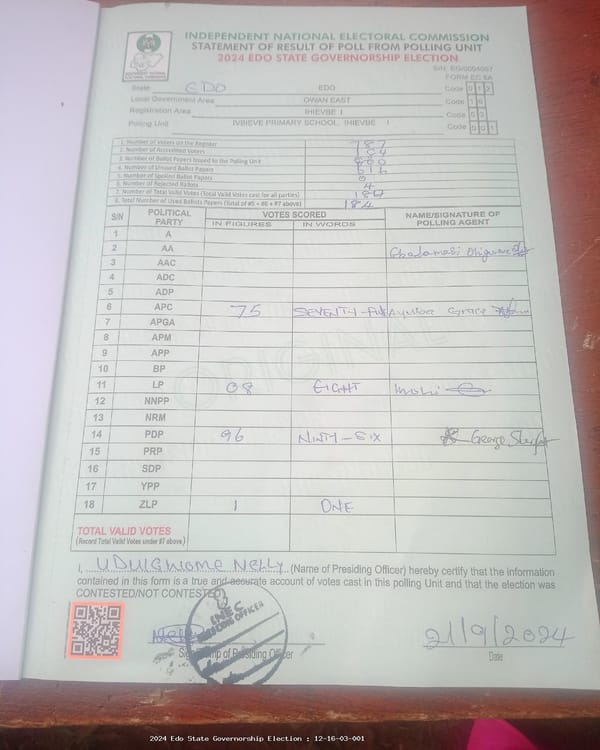 INDEPENDENT NATIONAL ELECTORAL COMMISSION
STATEMENT OF RESULT OF POLL FROM POLLING UNIT
2024 EDO STATE GOVERNORSHIP ELECTION
FORM EC 8A
State EDO EDO Code
Local Government Area OWAN EAST Code 16
Registration Area IHIEVBE I Code 03
Polling Unit IVBIEVE PRIMARY SCHOOL, IHIEVBE I Code 001
1. Number of Voters on the Register 787
2. Number of Accredited Voters
3. Number of Ballot Papers Issued to the Polling Unit
4. Number of Unused Ballot Papers
5. Number of Spoiled Ballot Papers 0
6. Number of Rejected Ballots 4
7. Number of Total Valid Votes (Total Valid Votes cast for all parties)
8. Total Number of Used Ballots Papers (Total of #5 + #6 + #7 above) 184
S/N POLITICAL PARTY VOTES SCORED NAME/SIGNATURE OF POLLING AGENT
IN FIGURES IN WORDS
1 A
2 AA
3 AAC
4 ADC
5 ADP
6 APC 75 SEVENTY-FIVE Grace
7 APGA
8 APM
9 APP
10 BP
11 LP 08 EIGHT
12 NNPP
13 NRM
14 PDP 96 NINTY-SIX George
15 PRP
16 SDP
17 YPP
18 ZLP 1 ONE
ORIGINAL
TOTAL VALID VOTES
(Record Total Valid Votes under #7 above)
I, Nelly (Name of Presiding Officer) hereby certify that the information
contained in this form is a true and accurate account of votes cast in this polling Unit and that the election was
CONTESTED/NOT CONTESTED
INEC
OFFICER
of Presiding Officer
21/9/2024
Date
2024 Edo State Governorship Election : 12-16-03-001